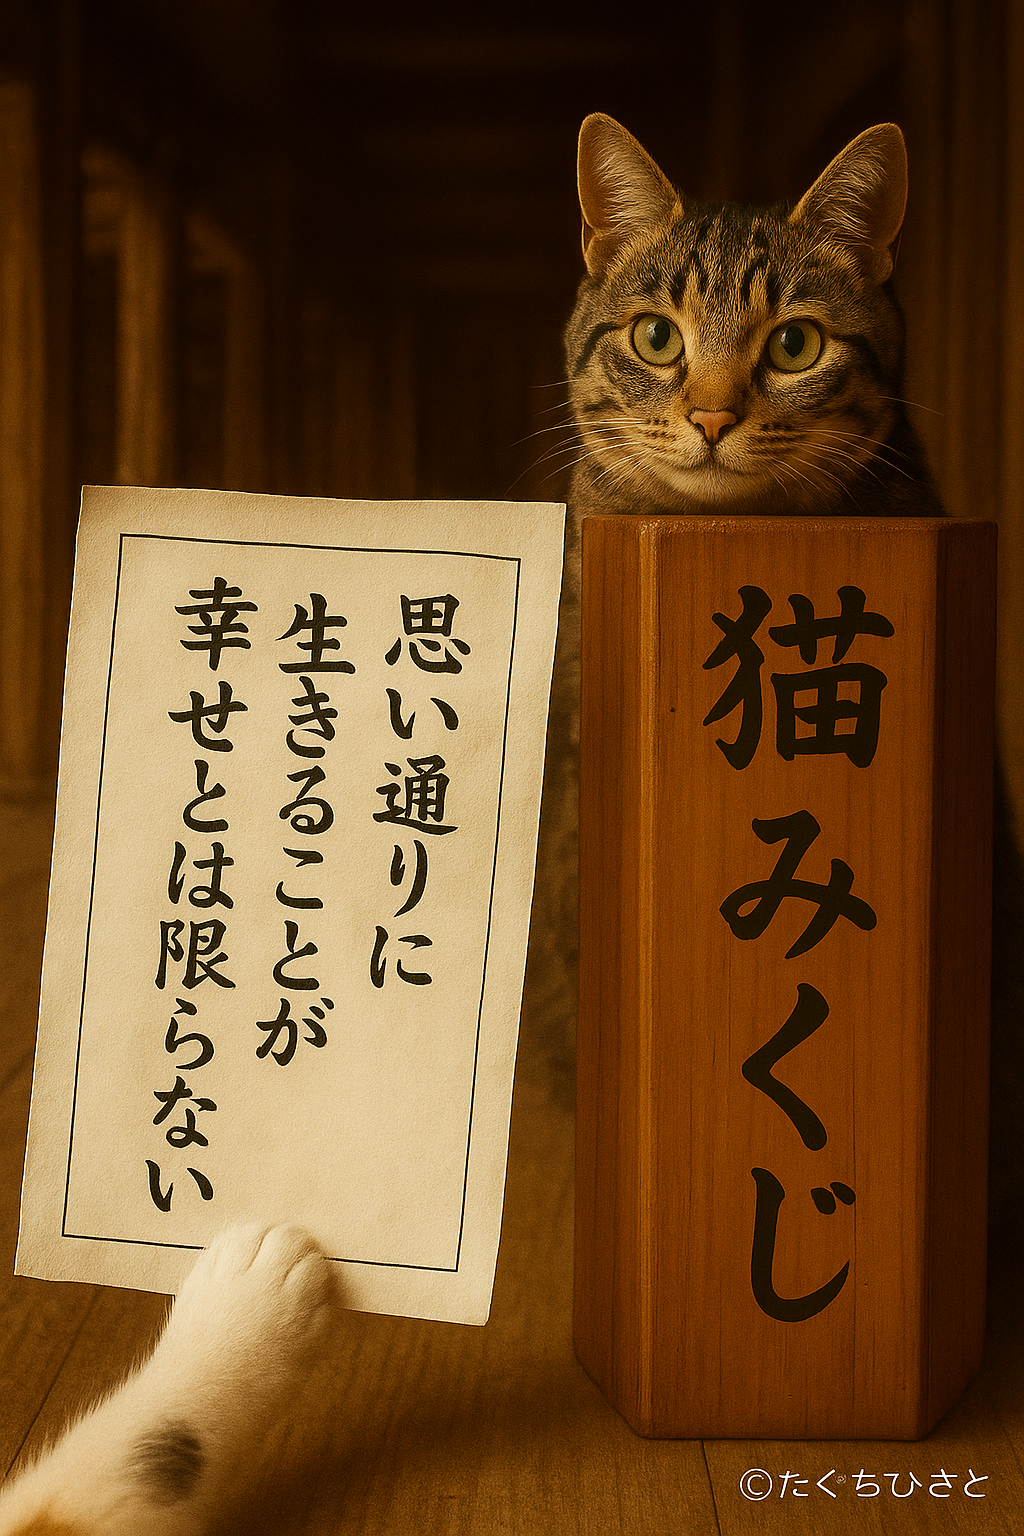 思い通りに
生きることが
幸せとは限らない
猫みくじ
©たくちひさと